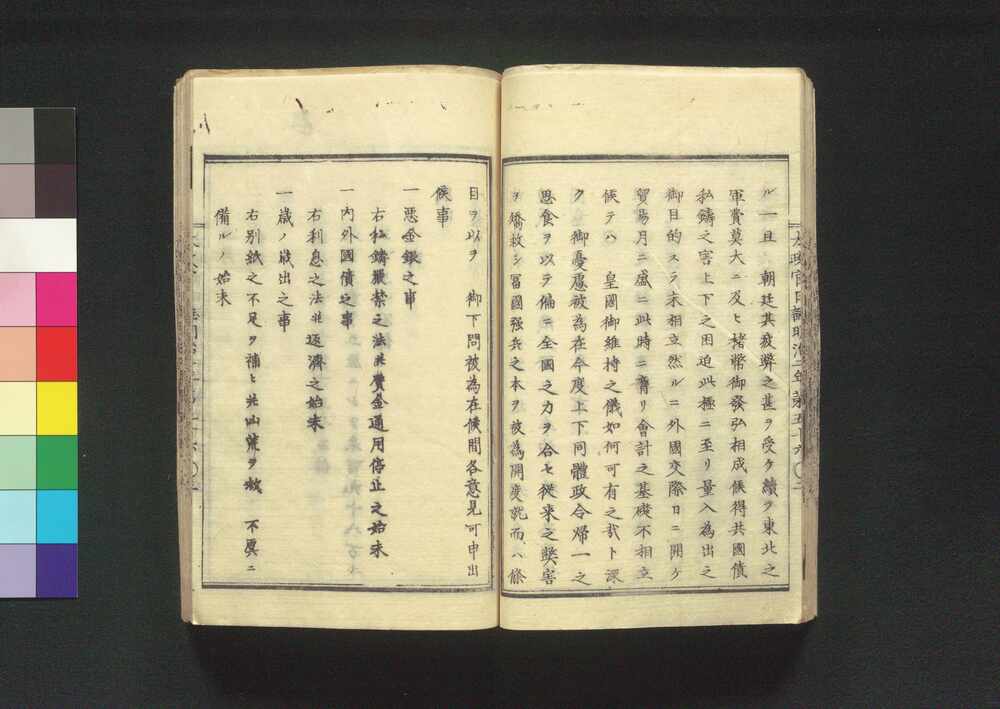 ル一旦　朝廷其疲弊之甚ヲ受ケ續ヲ東北之
軍費莫大ニ及ヒ楮幣御發弘相成候得共國債
私鑄之害上下之困迫此極ニ至リ量入為出之
御目的スラ未相立然ルニ外國交際日ニ開ケ
貿易月ニ盛ニ此時ニ膺リ會計之基礎不相立
候テハ　皇國御維持之儀如何可有之哉ト深
ク　御憂慮被為在今度上下同體政令帰一之
思食ヲ以テ偏ニ全國之力ヲ合セ從来之獘害
ヲ矯救シ冨國强兵之本ヲ被為開度就而ハ條
目ヲ以ヲ　御下問被為在候間各意見可申出
候事
一悪金銀之事
右私鑄嚴禁之法并贋金通用停止之始末
一内外國債之事
右利息之法并返濟之始末
一歳ノ歳出之事
右別紙之不足ヲ補ヒ并凶荒ヲ救　不虞ニ
備ルノ始末
太政官日誌明治二年第五十六〇二